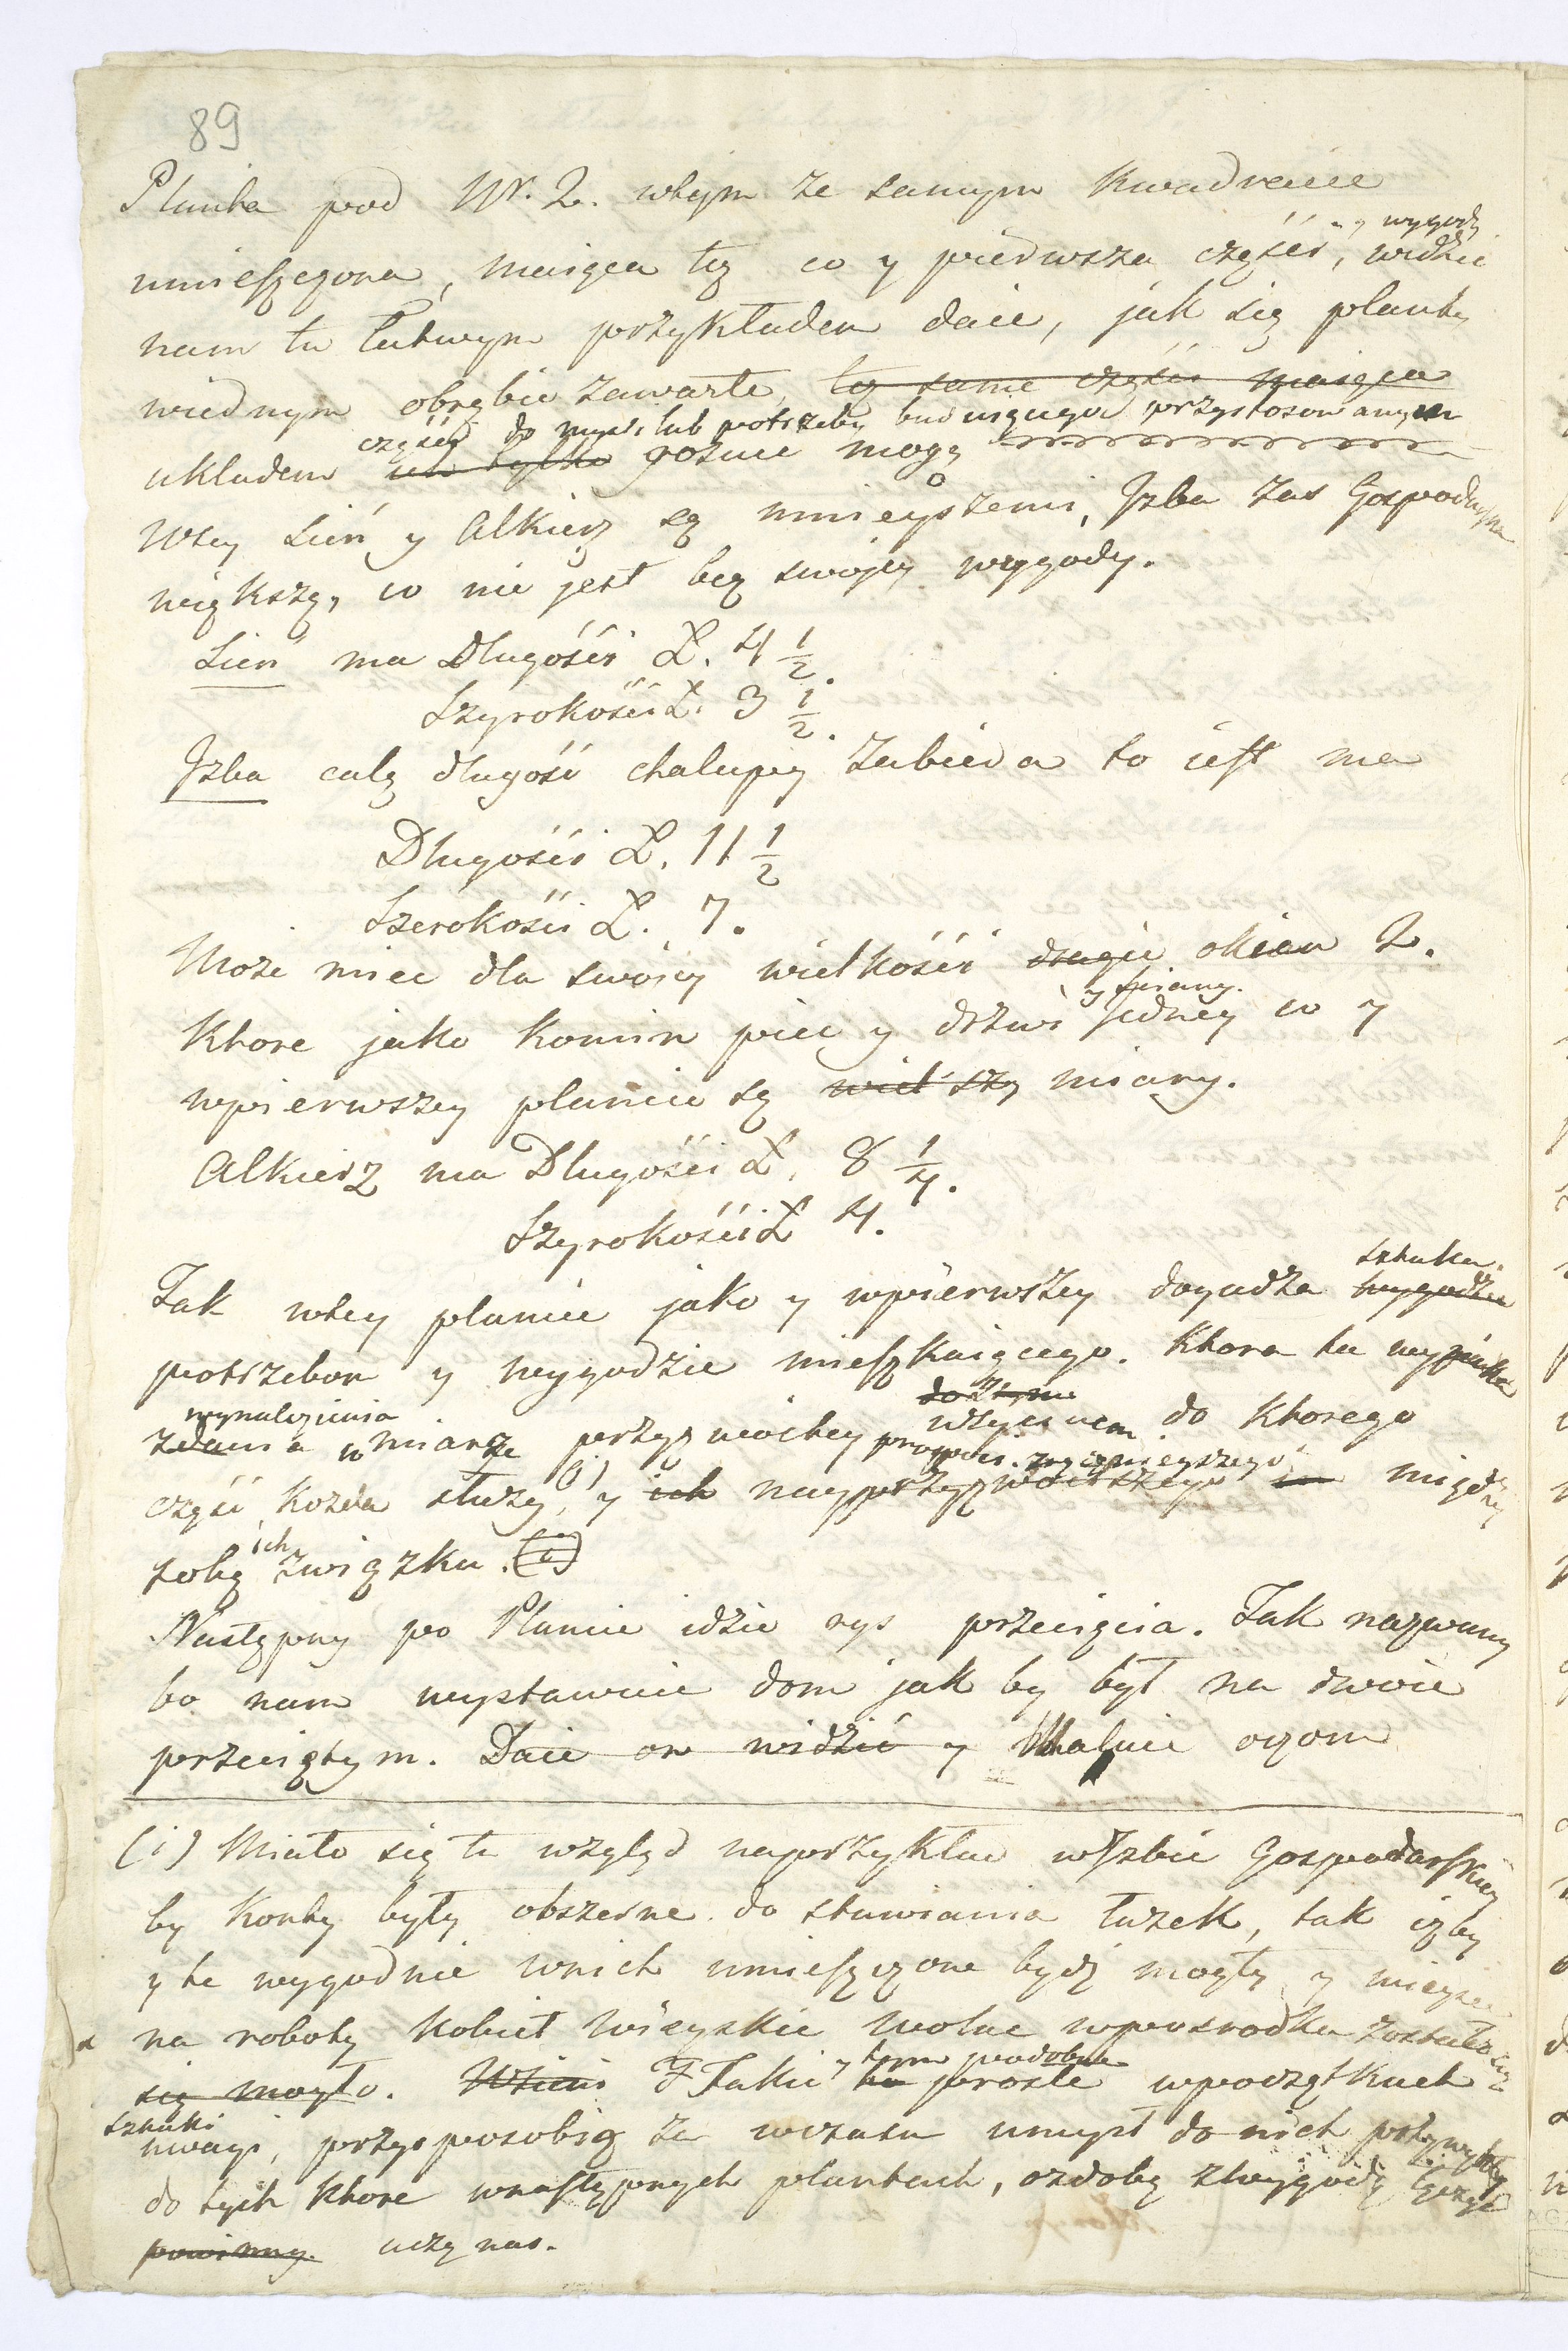 89
Planta pod Nr. 2. wtejm ze samym Kwadracie
y wygody
umieszczona, maiąca tęż co y pierwsza części, widzic
nam tu łatwym przykładem daie, jak się planty
wiednym obrębie zawarte, tęż same części maiąca
części do myśli lub potrzeby buduiącego przystosowanym
układem różnić mogą
Wtey Sień y Alkierz są mnieyszemi, Jzba zas Gospodarska
większą, co nie jest bez swojey wygody.
Sień ma Długości Ł. 4 1/2.
Szyrokości Ł. 3 1/2.
Jzba całą długość chałupy zabiera to iest ma
Długości Ł. 11 1/2
Szerokości Ł. 7.
Może miec dla swoiey wielkości okien 2.
y sciany.
Ktore jako Komin piec y drzwi jedney co y
wpierwszey plancie są miary.
Alkierz ma Długości Ł. 8 1/4.
Szyrokości Ł 4.
sztuka.
Tak wtey plancie jako y wpierwszey dogadza wygodzie
potrzebom y wygodzie mieszkaiącego. Ktora tu
wynalezienia
zdania w miarze do Ktorego
część każda służy, (i) y ich między
sobą ich związku. (i)
Następny po Plancie idzie rys przecięcia. Tak nazwany
bo nam wystawuie dom jak by był na dwoie
przeciętym. Daie on widzić y Maluie oczom
(i) Miało się tu wzgląd naprzykład wJzbie Gospodarskiey
by Konty były obszerne do stawiania łużek, tak iżby
y te wygodnie wnich umieszczone bydź mogły y mieysce
na roboty Kobiet Wieyskie wolne wposrodku zostało
się mogło. Takie y tym podobne proste wpoczątkach
sztuki
uwagi, przysposobią za wczasu umysł do nich
do tych ktore wnastępnych plantach, ozdobę zwygodą łączyć
powinny. uczą nas.